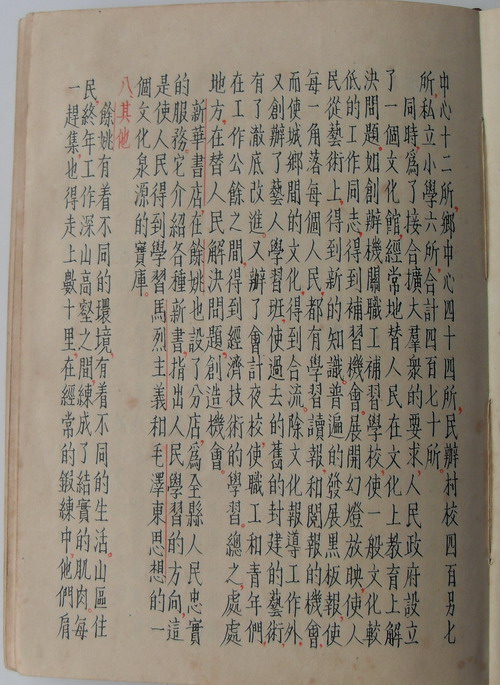 中心十二所,鄉中心四十四所,民辦村校四百另七
所,私立小學六所,合計四百七十所。
同時,爲了接合擴大羣衆的要求,人民政府設立
了一個文化館,經常地替人民在文化上教育上解
決問題,如創辦機關職工補習學校,使一般文化較
低的工作同志得到補習機會,展開幻燈放映,使人
民從藝術上,得到新的知識,普遍的發展黑板報,使
每一角落每個人民,都有學習讀報和閱報的機會,
而使城鄉間的文化,得到合流。除文化報導工作外,
又創辦了藝人學習班,使過去的舊的封建的藝術,
有了澈底改進,又辦了會計夜校,使職工和青年們,
在工作公餘之間,得到經濟技術的學習。總之,處處
地方,在替人民解決問題,創造機會。
新華書店,在餘姚也設了分店,爲全縣人民忠實
的服務。它介紹各種新書,指出人民學習的方向,這
是使人民得到學習馬烈主義和毛澤東思想的一
個文化泉源的寶庫。
八、其他
餘姚有着不同的環境,有着不同的生活。山區住
民,終年工作深山高壑之間,練成了結實的肌肉。每
一趕集,也得走上數十里,在經常的鍛練中,他們肩